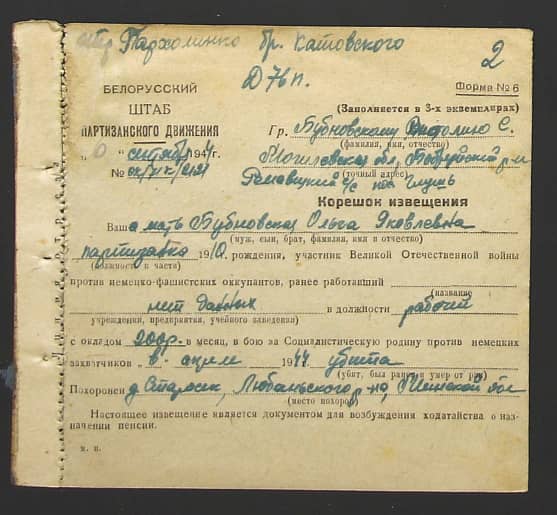 Пархоменко бр. Катовского
2
Д 76 п.
БЕЛОРУССКИЙ
ШТАБ
ПАРТИЗАНСКОГО ДВИЖЕНИЯ
" сентября 1944
№
Форма № 6
(Заполняется в 3-х экземплярах)
Гр. Бубновскому С.
(фамилия, имя, отчество)
Могилевская обл, Бобруйский р-н
(точный адрес)
с/с
Корешок извещения
Ваша мать Бубновская Ольга Яковлевна
(муж, сын, брат, фамилия, имя и отчество)
партизанка 1910. рождения, участник Великой Отечественной войны
(должность в части)
против немецко-фашистских оккупантов, ранее работавший
(название
нет данных в должности рабочей
учреждения, предприятия, учебного заведения)
с окладом 200р. в месяц, в бою за Социалистическую родину против немецких
захватчиков " в апреле 1944 убита
(убит, был ранен и умер от ран)
Похоронен д. Любаньского р-на, Минской обл
(место похорон)
Настоящее извещение является документом для возбуждения ходатайства о наз-
начении пенсии.
м. п.